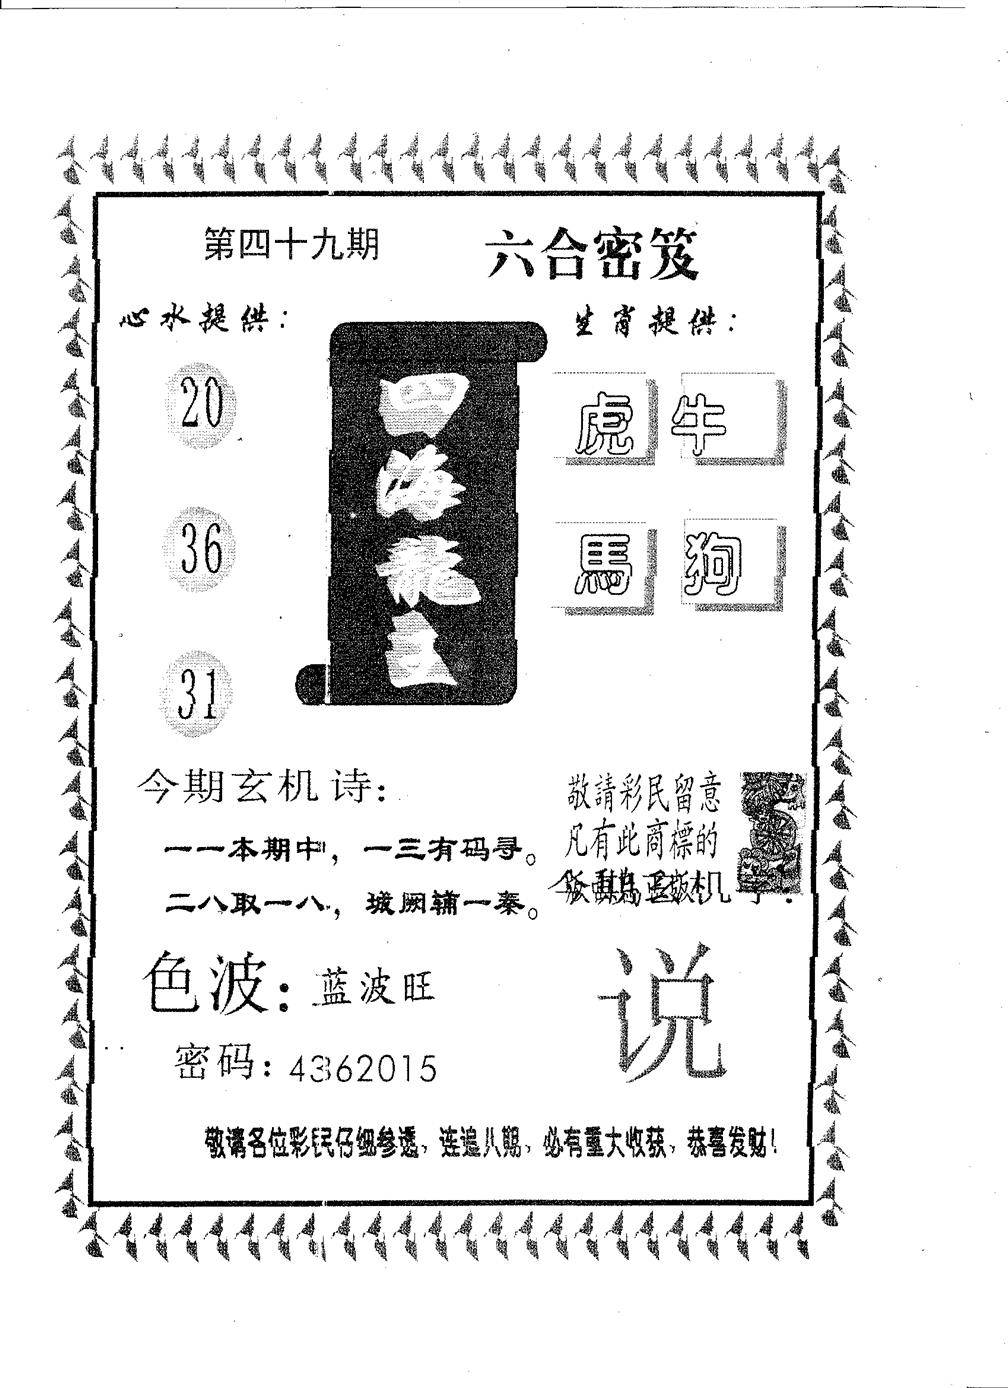 第四十九期
六合密笈
心水提供：
生肖提供：
20
36
31
四
龍
虎 牛
馬 狗
今期玄机诗：
一一本期中，一三有码寻。
二八取一八，城阙辅一秦。
敬請彩民留意
凡有此商標的
色波：蓝波旺
说
密码：4362015
敬请各位彩民仔细参透，连追八期，必有重大收获，恭喜发财！